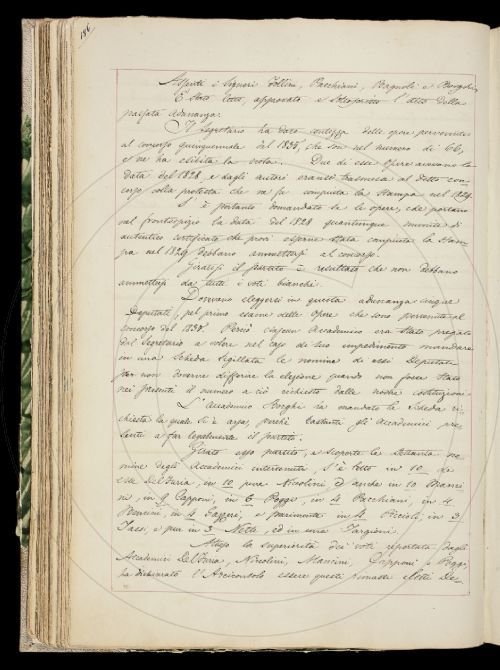 186
Assenti i Signori Zollini, Pacchiani, Bagnoli e Borghi.
È stato letto, approvato e sottoscritto l'atto della
passata adunanza.
Il Segretario ha dato contezza delle opere pervenute
al concorso quinquennale del 1838, che son nel numero di 66,
e ne ha esibita la nota. Due di esse opere avevano la
data del 1828 e dagli autori eransi trasmesse al detto con-
corso colla protesta che ne fu compiuta la stampa nel 1829.
S'è pertanto domandato se le opere, che portano
nel frontespizio la data del 1828 quantunque munite di
autentico certificato che provi esserne stata compiuta la stam-
pa nel 1829 debbano ammettersi al concorso.
Giratosi il partito è resultato che non debbano
ammettersi da tutti i voti bianchi.
Dovevano eleggersi in questa adunanza cinque
Deputati, pel primo esame delle opere che sono pervenute al
concorso del 1838. Perciò ciascun Accademico era stato pregato
dal Segretario a volere nel caso di suo impedimento mandare
in una scheda sigillata la nomina di essi Deputati
per non doverne differire la elezione quando non fosse stato
nei presenti il numero a ciò richiesto dalle nostre costituzioni.
L'Accademico Borghi ha mandato la scheda ri-
chiesta la quale si è arsa, perchè bastanti gli Accademici pre-
senti a far legalmente il partito.
Girato esso partito, e scoperte le settanta no-
mine degli Accademici intervenuti, s'è letto in 10 le
cav. Del Furia, in 10 pure Niccolini ed anche in 10 Manzi-
ni, in 9 Capponi, in 6 Poggi, in 4 Pacchiani, in 4
Bencini, in 4 Gazzeri, e parimente in 4 Piccioli, in 3
Tassi, e pur in 3 Nesti, ed in una Targioni.
Attesa la superiorità dei voti riportata dagli
Accademici Del Furia, Niccolini, Manzini, Capponi e Poggi,
ha dichiarato l'Arciconsolo essere questi rimasti eletti De-